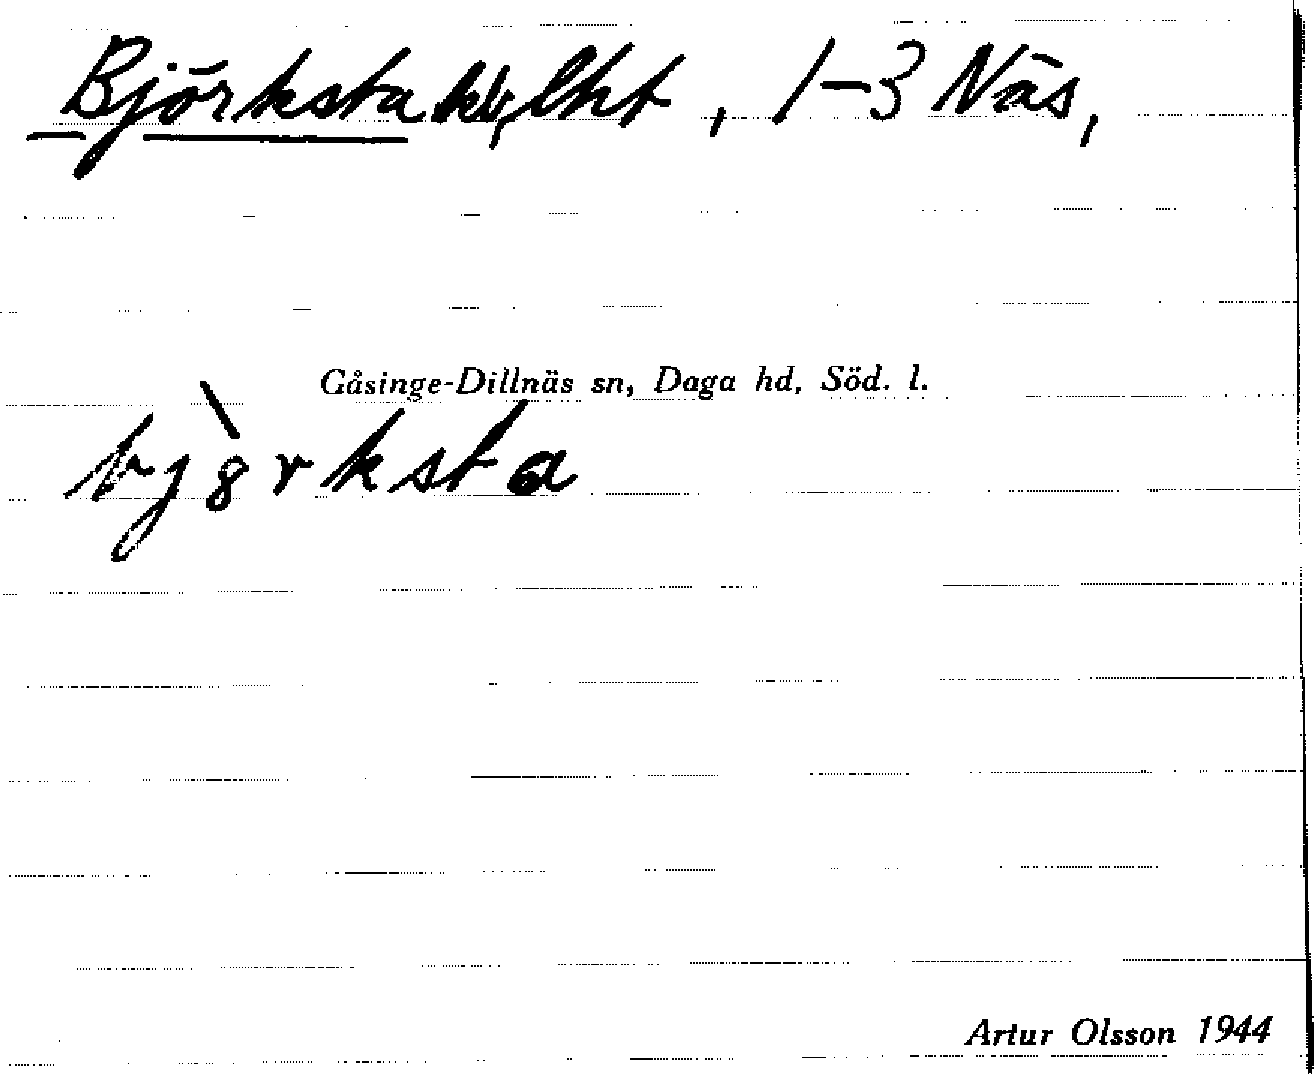 Björksta kv, lht, 1-3 Näs,
Gåsinge-Dillnäs sn, Daga hd, Söd. l.
bj8̀rksta
Artur Olsson 1944